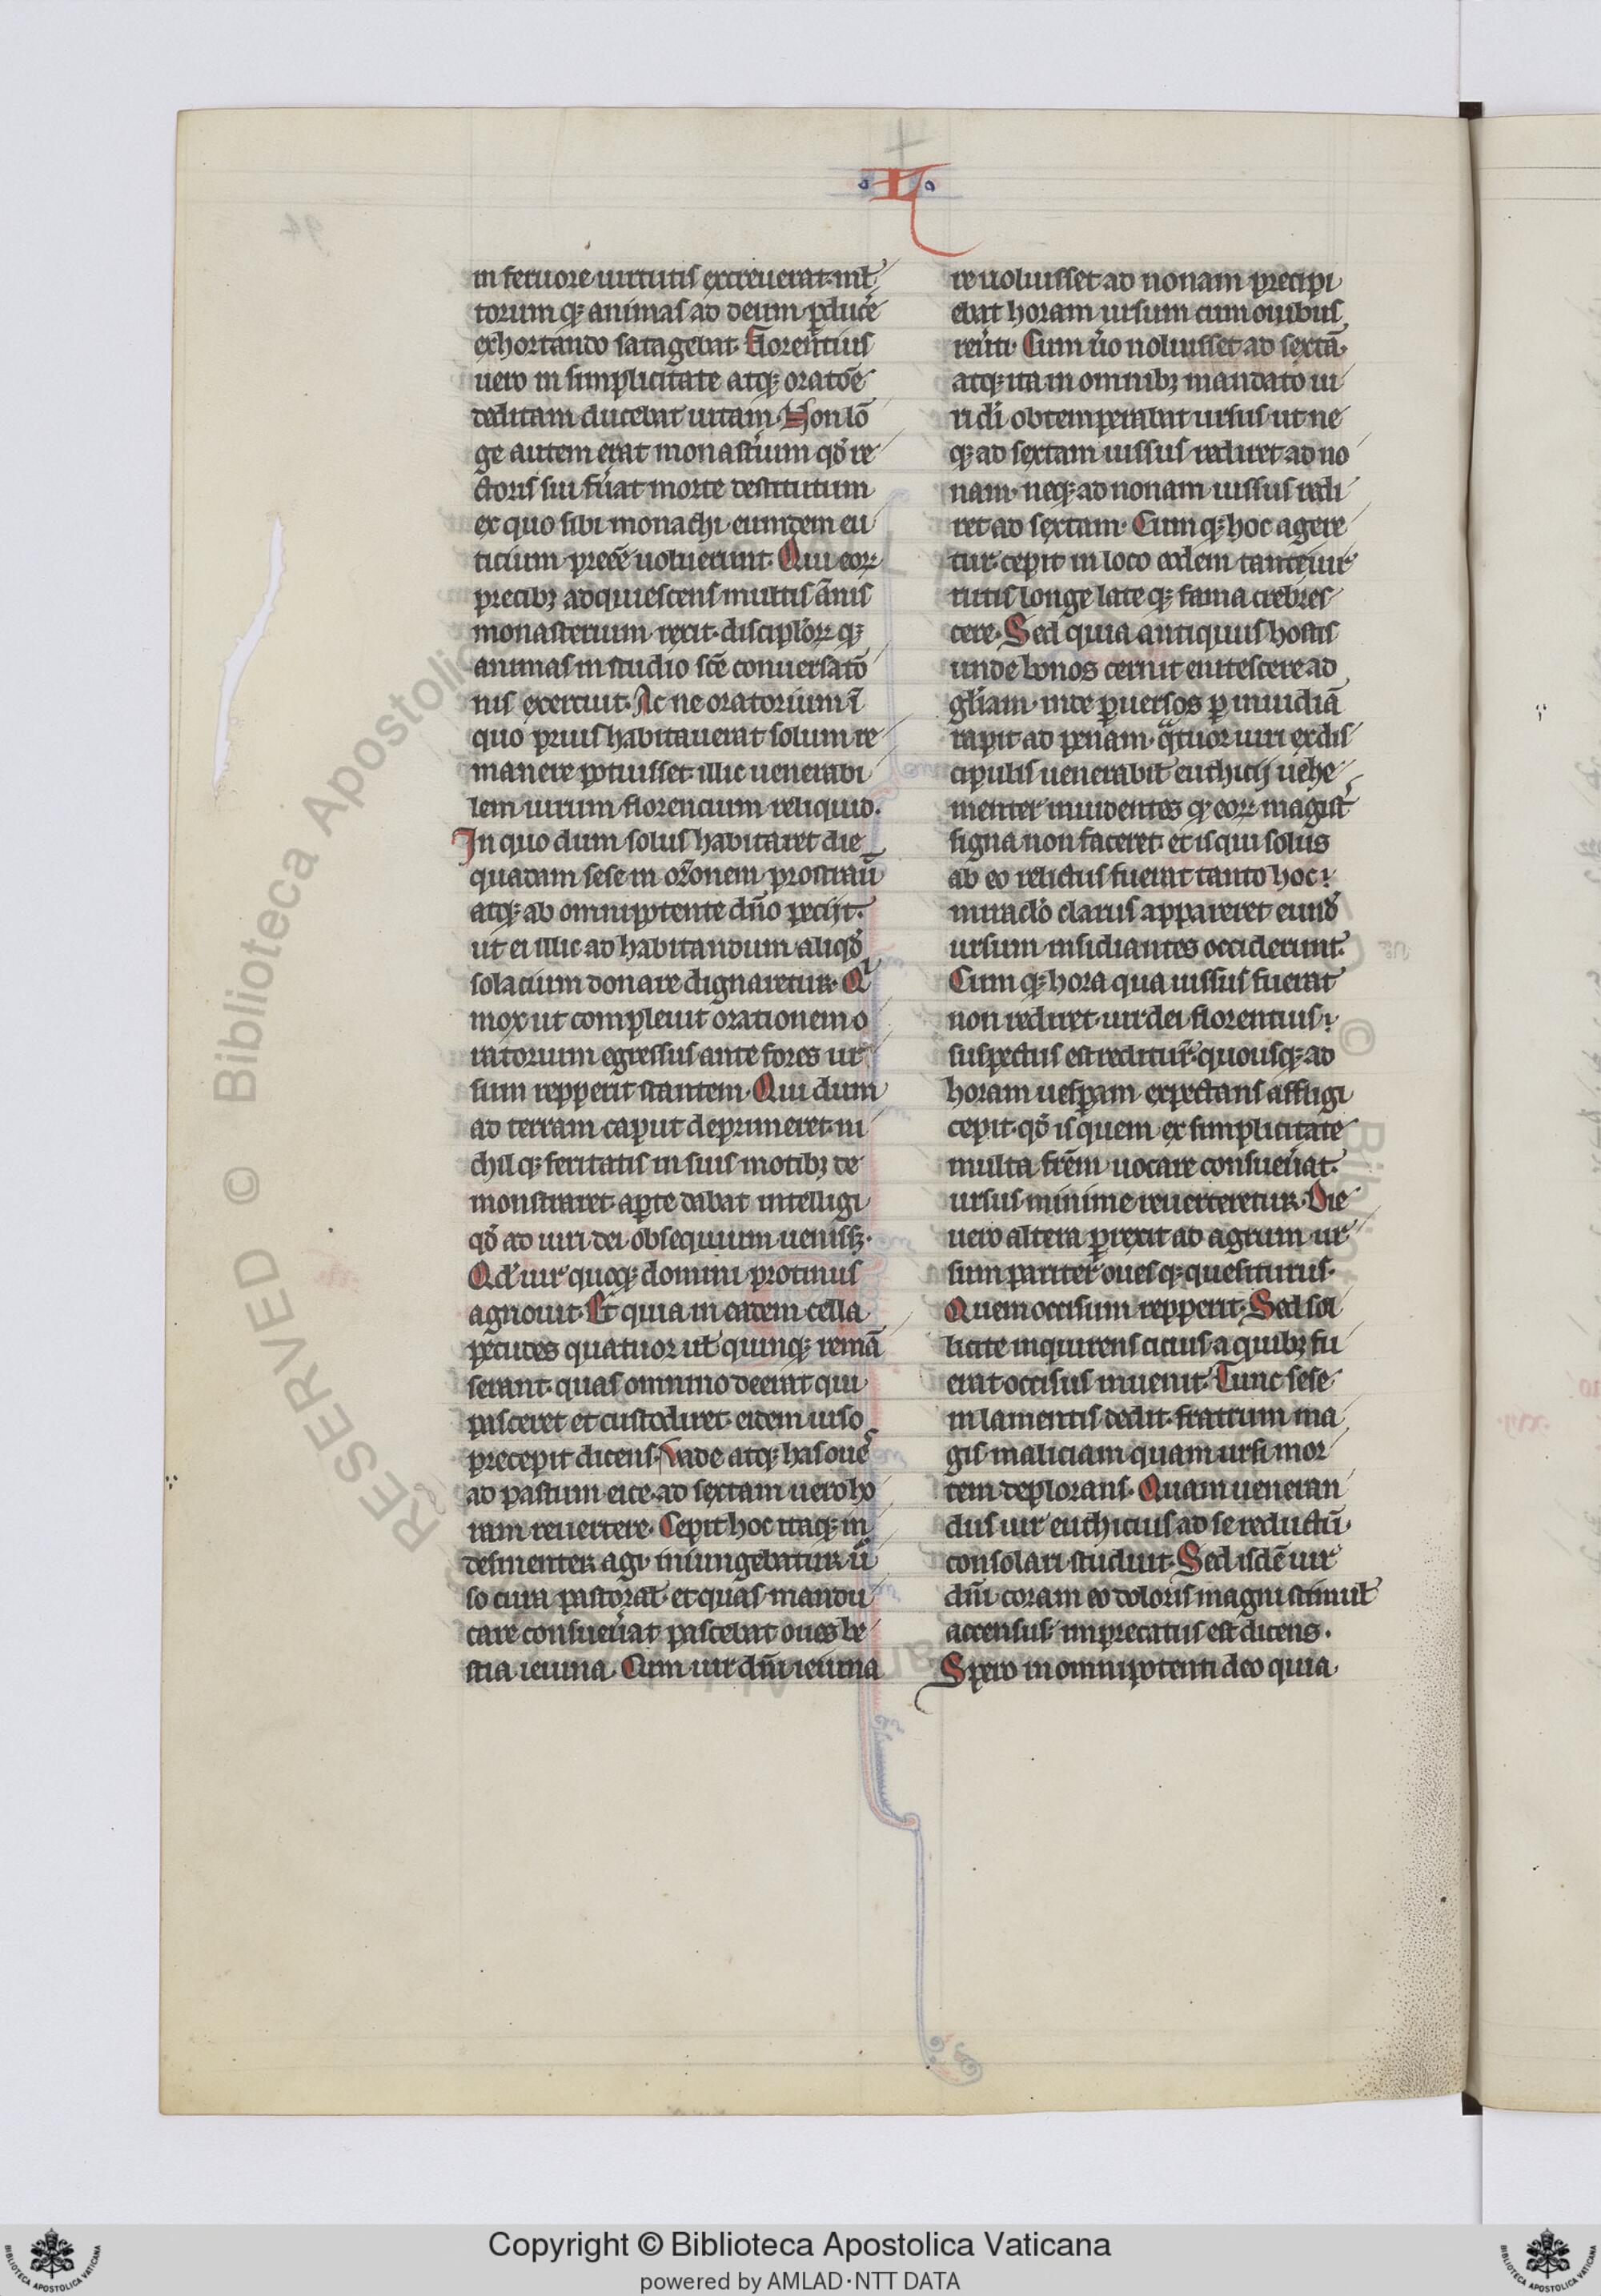 L
in feruore uirtutis excreuerat. ml̄
torum q; animas ad deum ꝑducē
exhortando satagebat. Florentius
uero in simplicitate atq; oratōe
deditam ducebat uitam. Non lō
ge autem erat monastīum qd̄ re
ctoris sui fūat morte destitutum
ex quo sibi monachi eumdem eu
ticium preēe uoluerunt. Qui eoꝝ
precibꝫ adquiescens multis ānis
monasterium rexit. discipłoꝝ q;
animas in studio scē conuersatō
nis exercuit. Ac ne oratorium ī
quo prius habitauerat solum re
manere potuisset. illic uenerabi
lem uirum florencium reliquid.
In quo dum solus habitaret die
quadam sese in or̄onem prostrau̅
atq; ab omnipotente dn̄o peciit.
ut ei illic ad habitandum aliqd̄
solacium donare dignaretur. Qͥ
mox ut compleuit orationem o
ratorium egressus ante fores ur
sum repperit stantem. Qui dum
ad terram caput deprimeret. ni
chil q; feritatis in suis motibꝫ de
monstraret. aꝑte dabat intelligi
qd̄ ad uiri dei obsequium uenissꝫ.
Qd̄ uir quoq; domini protinus
agnouit. Et quia in eadem cella
pecudes quatuor ul̄ quinq; remā
serant. quas omnino deerat qui
pasceret et custodiret. eidem urso
precepit dicens. Vade atq; has oues
ad pastum eice. ad sextam uero ho
ram reuertere. Cepit hoc itaq; in
desinenter agi. iniungebatur ū
so cura pastoral̄. et quas mandu
care consueūat pascebat oues be
stia ieiuna. Cum uir dn̄i ieiuna
re uoluisset ad nonam precipi
ebat horam ursum cum ouibus
reūti. Cum ūo noluisset ad sextā.
atq; ita in omnibꝫ mandato ui
ri dī obtemperabat ursus ut ne
q; ad sextam iussus rediret ad no
nam. neq; ad nonam iussus redi
ret ad sextam. Cum q; hoc agere
tur. cepit in loco eodem tante uir
tutis longe late q; fama crebres
cere. Sed quia antiquus hostis
unde bonos cernit enitescere ad
gl̄iam. inde ꝑuersos ꝑ inuidiā
rapit ad penam. qͣtuor uiri ex dis
cipulis uenerabil̄ euthicij uehe
menter inuidentes qͩ eoꝝ magist̄
signa non faceret. et is qui solus
ab eo relictus fuerat tanto hoc
miraclō clarus appareret eund̄
ursum insidiantes occiderunt.
Cum q; hora qua iussus fuerat
non rediret. uir dei florentius
suspectus est redditur. quousq; ad
horam uesꝑam expectans affligi
cepit. qd̄ is quem ex simplicitate
multa frēm uocare consueūat.
ursus minime reuerteretur. Die
uero altera ꝑrexit ad agrum ur
sum pariter oues q; quesiturus.
Quem occisum repperit. Sed sol
licite inquirens cicius a quibꝫ fu
erat occisus inuenit. Tunc sese
in lamentis dedit. fratrum ma
gis maliciam quam ursi mor
tem deplorans. Quam ueneran
dus uir euthicius ad se reductū.
consolari studuit. Sed isdē uir
dn̄i. coram eo doloris magni stimul̄
accensus. imprecatus est dicens.
Spero in omnipotenti deo quia
RESERVED © Biblioteca Apostolica
Copyright © Biblioteca Apostolica Vaticana
powered by AMLAD·NTT DATA
BIBLIOTECA APOSTOLICA VATICANA
BIBLIOTECA APOSTOLICA VATICANA